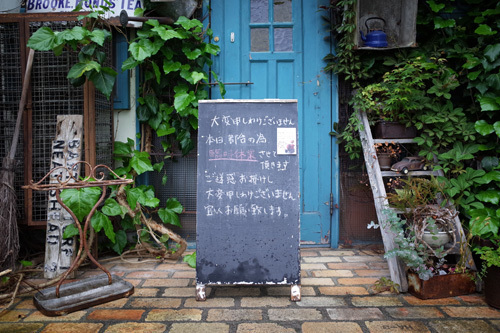 BROOKE BONDS TEA
大変申しわけございません
本日、都合の為
臨時休業させて
頂きます
ご迷惑お掛けし
大変申しわけございません
宜しくお願い致します。